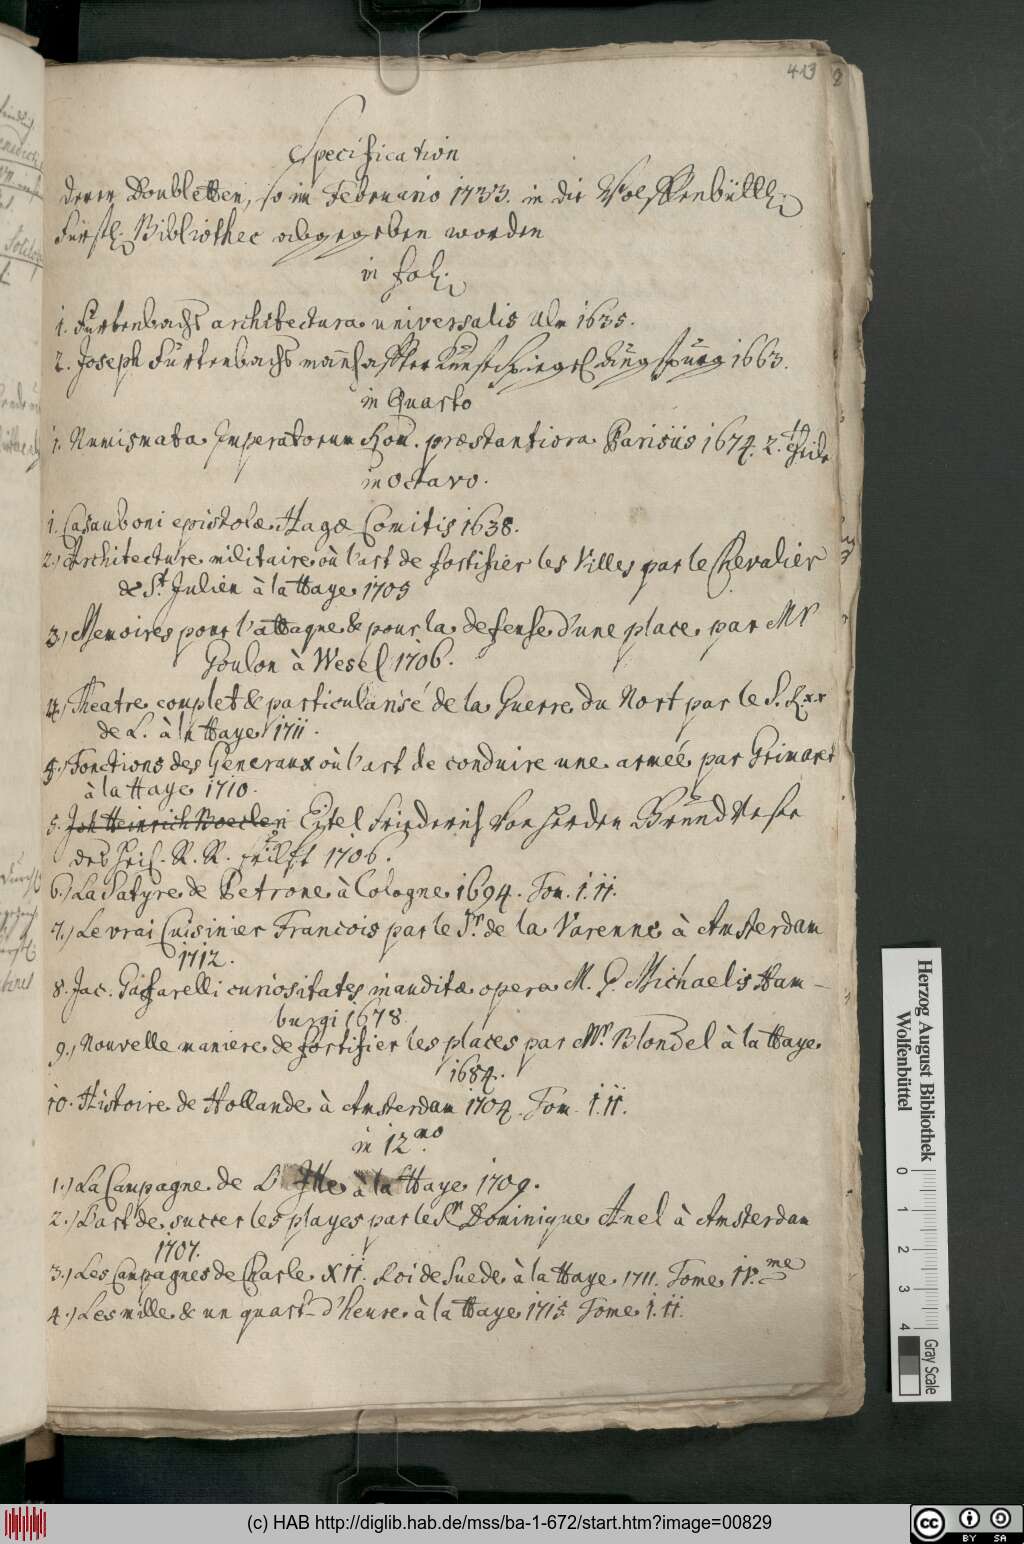 413
Specification
derer Doubletten, so im Februario 1733. in die Wolffenbüttl.
Fürstl. Bibliothec abgegeben worden
in fol.
1. Furtenbachs architectura universalis Ulm 1635.
2. Joseph Furtenbachs mannhaffter Kunst Spiegel Augspurg 1663.
in Quarto
1. Numismata Imperatorum Rom. præstantiora Parisiis 1674. 2.
in Octavo.
1. Casauboni epistolæ Hagæ Comitis 1638.
2.) Architecture militaire où l'art de fortifier les Villes par le Chevalier
de St Julien à la Haye 1705
3.) Memoires pour l'attaque & pour la defense d'une place par Mr
Goulon à Wesel 1706.
4.) Theatre complet & particularisé de la Guerre du Nort par le S. R.xx
de L. à la Haye 1711.
5.) Fonctions des Generaux où l'art de conduire une armée par Grimaret
à la Haye 1710.
5. Joh Heinrich Boecleri Eitel Friederich von Herden Grundveste
des Heil. R. R. 1706.
6.) La Satyre de Petrone à Cologne 1694. Tom. I. II.
7.) Le vrai Cuisinier Francois par le Sr. de la Varenne à Amsterdam
1712.
8. Jac. Gaffarelli curiositates inauditæ opera M. G. Michaelis Ham-
burgi 1678
9.) Nouvelle maniere de fortifier les places par Mr. Blondel à la Haye
1684.
10. Histoire de Hollande à Amsterdam 1704. Tom. I. II.
in 12mo.
1.) La Campagne de L'Ille à la Haye 1709.
2.) L'art de succer les playes par le Sr Dominique Anel à Amsterdam
1707.
3.) Les Campagnes de Charle XII. Roi de Suede à la Haye 1711. Tome II.me
4.) Les mille & un quart-d'heure à la Haye 1715. Tome I. II.
Herzog August Bibliothek
Wolfenbüttel
0 1 2 3 4
Gray Scale
(c) HAB http://diglib.hab.de/mss/ba-1-672/start.htm?image=00829
cc BY SA